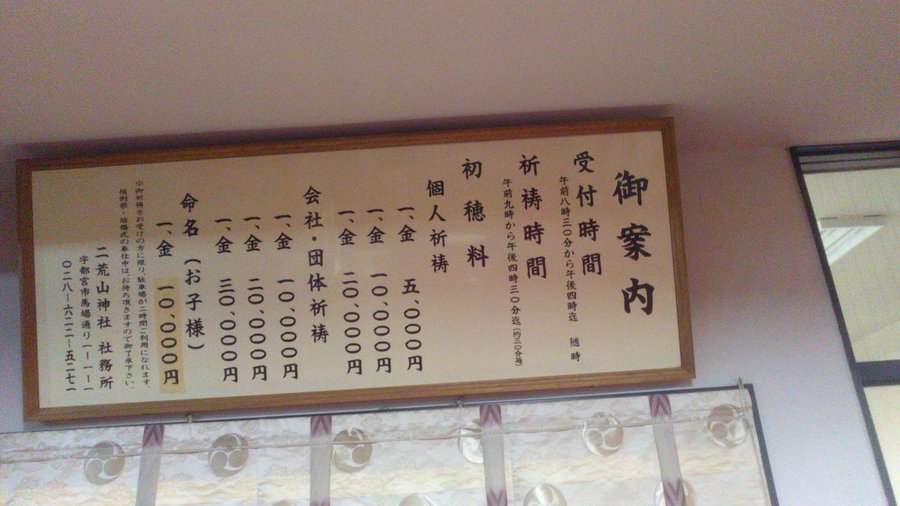 御案内
受付時間
午前八時三〇分から午後四時迄 随時
祈祷時間
午前九時から午後四時三〇分迄(約三〇分毎)
初穂料
個人祈祷
一、金 五、〇〇〇円
一、金 一〇、〇〇〇円
一、金 二〇、〇〇〇円
会社・団体祈祷
一、金 一〇、〇〇〇円
一、金 二〇、〇〇〇円
一、金 三〇、〇〇〇円
命名(お子様)
一、金 一〇、〇〇〇円
※御祈祷をお受けの方に限り、駐車場が二時間ご利用になれます。
恒例祭・結婚式の奉仕中は、お待ち頂きますので御了承下さい。
二荒山神社 社務所
宇都宮市馬場通り一ー一ー一
〇二八ー六二二ー五二七一